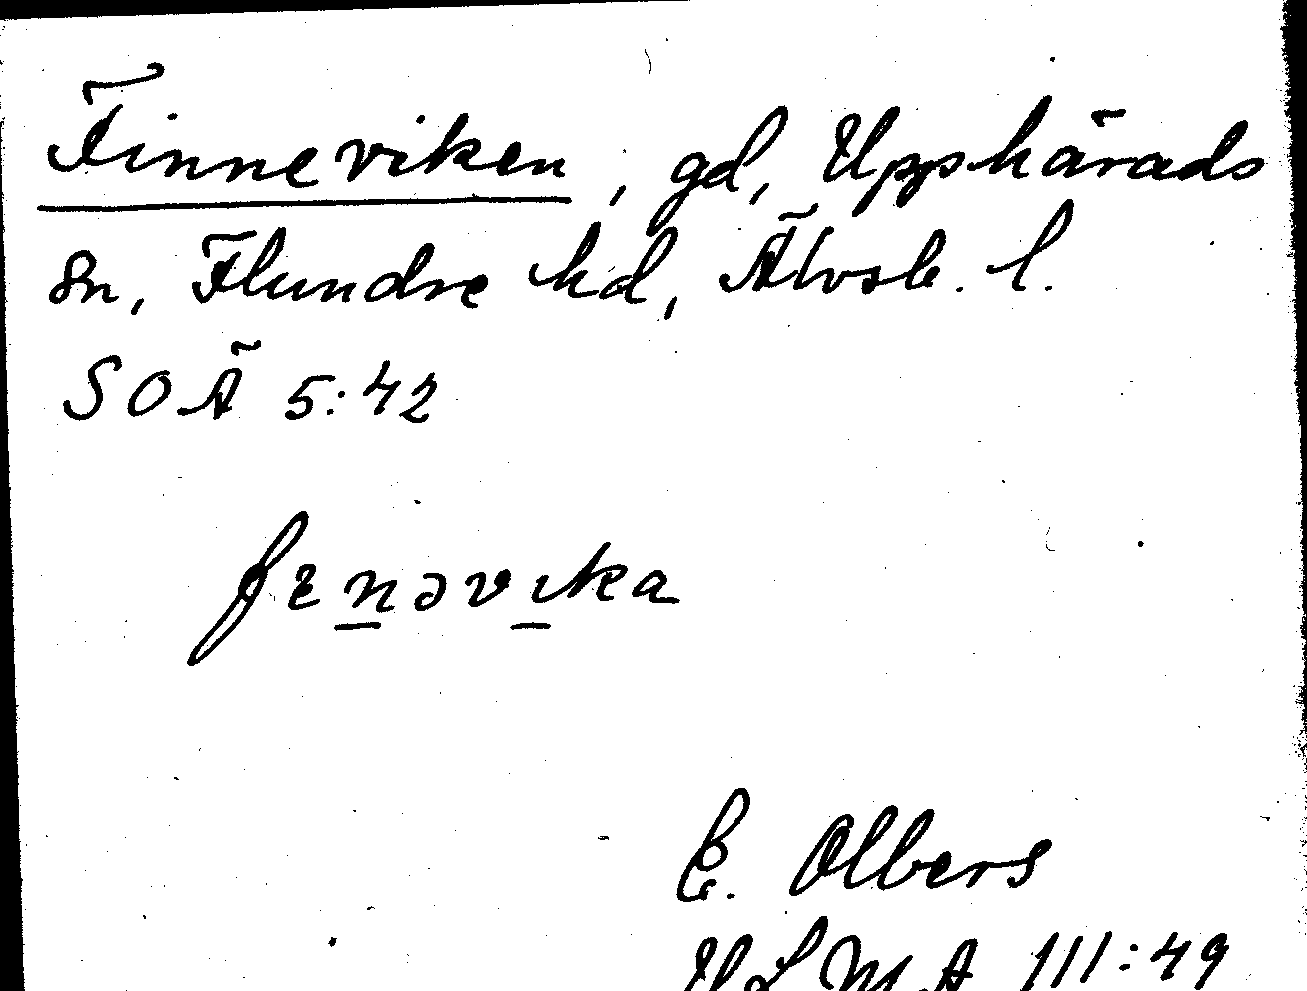 Finneviken, gd, Upphärads
sn, Flundre hd, Älvsb. l.
SOÄ 5:42
fɛn̲əvı̲ka
E. Olbers
ULMA 111:49